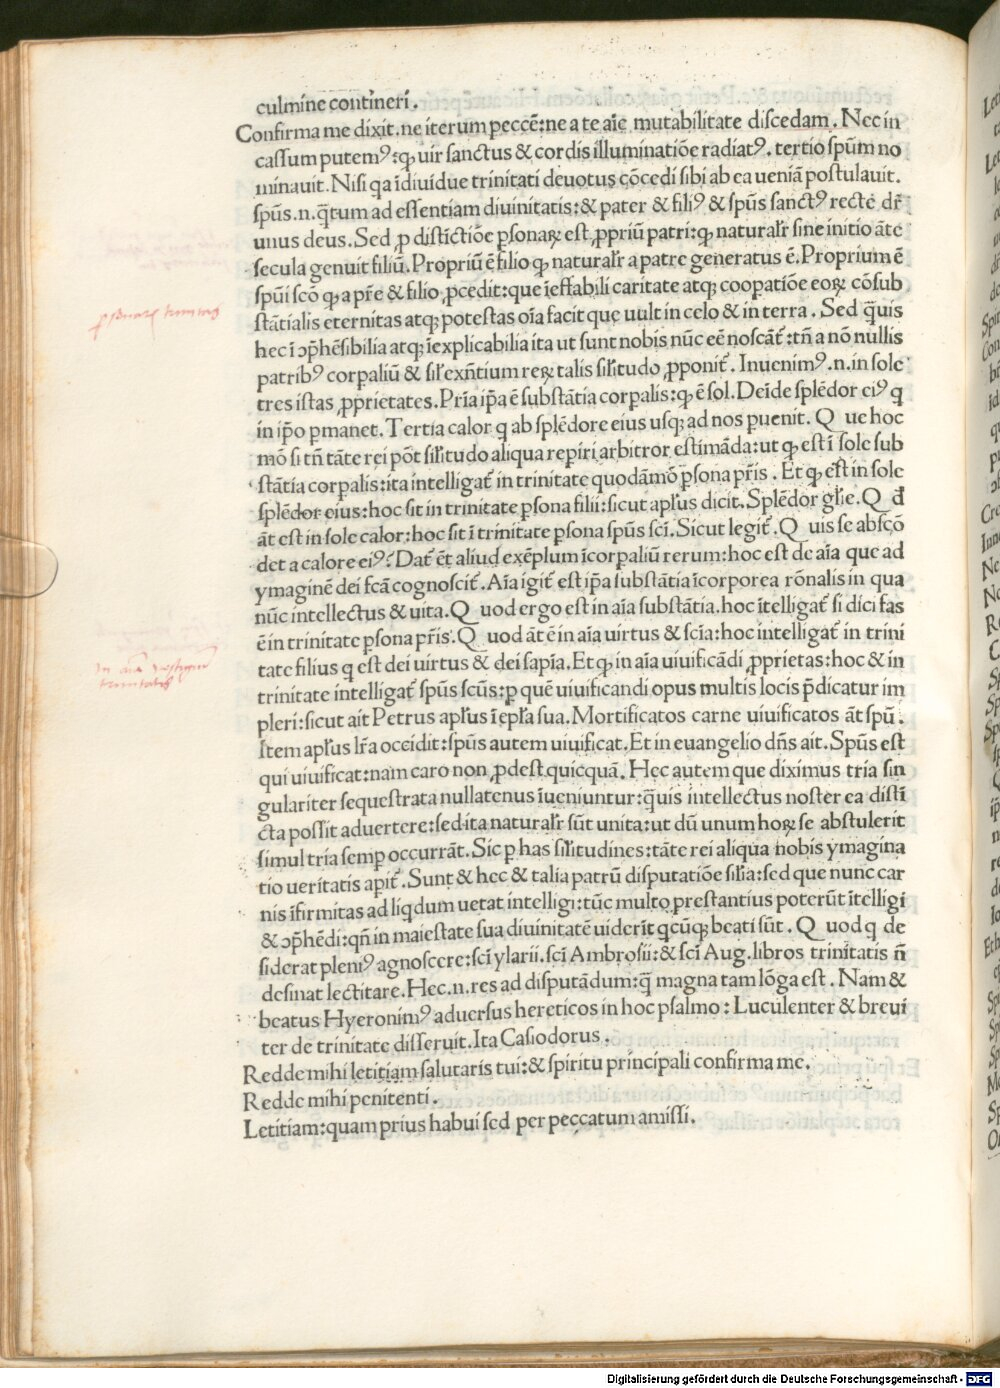 culmine contineri.
Confirma me dixit. ne iterum peccē: ne a te aīe mutabilitate discedam. Nec in
cassum putemꝰ: ꝙ uir sanctus & cordis illuminatiōe radiatꝰ. tertio spūm no
minauit. Nisi qa īdiuidue trinitati deuotus cōcedi sibi ab ea ueniā postulauit.
spūs .n. q̄tum ad essentiam diuinitatis: & pater & filiꝰ & spūs sanctꝰ recte dr̄
unus deus. Sed ꝓ distīctiōe ꝑsonaꝝ est ꝓpriū patri: ꝙ naturalr̄ sine initio āte
secula genuit filiū. Propriū ē filio ꝙ naturalr̄ a patre generatus ē. Proprium ē
spūi scō ꝙ a pr̄e & filio ꝓcedit: que īeffabili caritate atqꝫ coopatiōe eoꝝ cōsub
stātialis eternitas atqꝫ potestas oīa facit que uult in celo & in terra. Sed q̄uis
hec ī ɔp̄hēsibilia atqꝫ īexplicabilia ita ut sunt nobis nūc eē noscāt᷑: tn̄ a nō nullis
patribꝰ corpaliū & sil᷑ exn̄tium reꝝ talis sil᷑itudo ꝓponit᷑. Inuenimꝰ .n. in sole
tres istas ꝓprietates. Pria īpa ē substātia corpalis: ꝙ ē sol. Deīde splēdor eiꝰ q
in ip̄o ꝑmanet. Tertia calor q ab splēdore eius usqꝫ ad nos ꝑuenit. Q ue hoc
mō si tn̄ tāte rei pōt sil᷑itudo aliqua reꝑiri arbitror estimāda: ut ꝙ est ī sole sub
stātia corpalis: ita intelligat᷑ in trinitate quodāmō ꝑsona pr̄is. Et ꝙ est in sole
splēdor eius: hoc sit in trinitate ꝑsona filii: sicut apl᷑us dicit. Splēdor gl̄ie. Q d̄
āt est in sole calor: hoc sit ī trinitate ꝑsona spūs scī. Sicut legit᷑. Q uis se abscō
det a calore eiꝰ? Dat᷑ ēt aliud exēplum īcorpaliū rerum: hoc est de aīa que ad
ymaginē dei fcā cognoscit᷑. Aīa igit᷑ est ip̄a substātia īcorporea rōnalis in qua
nūc intellectus & uita. Q uod ergo est in aīa substātia. hoc ītelligat᷑ si dici fas
ē in trinitate ꝑsona pr̄is. Q uod āt ē in aīa uirtus & scīa: hoc intelligat᷑ in trini
tate filius q est dei uirtus & dei sapīa. Et ꝙ in aīa uiuificādi ꝓprietas: hoc & in
trinitate intelligat᷑ spūs scūs: ꝑ quē uiuificandi opus multis locis p̄dicatur im
pleri: sicut ait Petrus apl᷑us ī epl᷑a sua. Mortificatos carne uiuificatos āt spū.
Item apl᷑us lr̄a occidit: spūs autem uiuificat. Et in euangelio dn̄s ait. Spūs est
qui uiuificat: nam caro non ꝓdest quicquā. Hec autem que diximus tria sin
gulariter sequestrata nullatenus īueniuntur: q̄uis intellectus noster ea distī
cta possit aduertere: sed ita naturalr̄ sūt unita: ut dū unum hoꝝ se abstulerit
simul tria semꝑ occurrāt. Sic ꝑ has sil᷑itudines: tāte rei aliqua nobis ymagina
tio ueritatis aꝑit᷑. Sunt & hec & talia patrū disputatiōe sil᷑ia: sed que nunc car
nis īfirmitas ad liqdum uetat intelligi: tūc multo prestantius poterūt ītelligi
& ɔp̄hēdi: qn̄ in maiestate sua diuinitatē uiderīt qcūqꝫ beati sūt. Q uod q de
siderat pleniꝰ agnoscere: scī ylarii. scī Ambrosii: & scī Aug. libros trinitatis n̄
desinat lectitare. Hec .n. res ad disputādum: q̄ magna tam lōga est. Nam &
beatus Hyeronimꝰ aduersus hereticos in hoc psalmo: Luculenter & breui
ter de trinitate disseruit. Ita Casiodorus.
Redde mihi letitiam salutaris tui: & spiritu principali confirma me.
Redde mihi penitenti.
Letitiam: quam prius habui sed per peccatum amissi.
ꝑsonarꝫ trinitas
in aīa vestigium
trinitatis
Digitalisierung gefördert durch die Deutsche Forschungsgemeinschaft - DFG